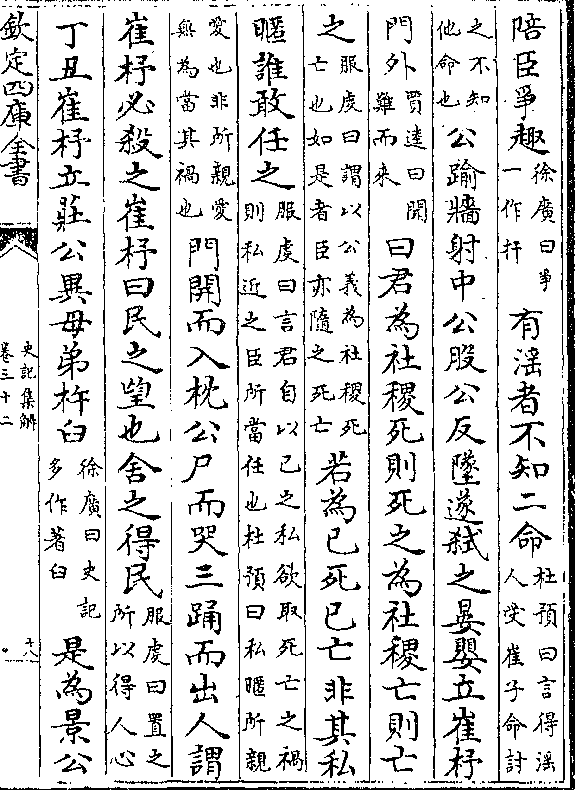 陪臣爭趣徐廣曰爭一作扞有淫者不知二命杜預曰言得淫人受崔子命討
之不知他命也公踰牆射中公股公反墜遂弑之晏嬰立崔杼
門外賈逵曰聞難而來曰君為社稷死則死之為社稷亡則亡
之服虔曰謂以公義為社稷死亡也如是者臣亦隨之死亡若為已死已亡非其私
暱誰敢任之服虔曰言君自以己之私欲取死亡之禍則私近之臣所當任也杜預曰私暱所親
愛也非所親愛無為當其禍也門開而入枕公尸而哭三踊而出人謂
崔杼必殺之崔杼曰民之望也舍之得民服虔曰置之所以得人心
丁丑崔杼立莊公異母弟杵臼徐廣曰史記多作著臼是為景公
欽定四庫全書
史記集解
卷三十二
十八